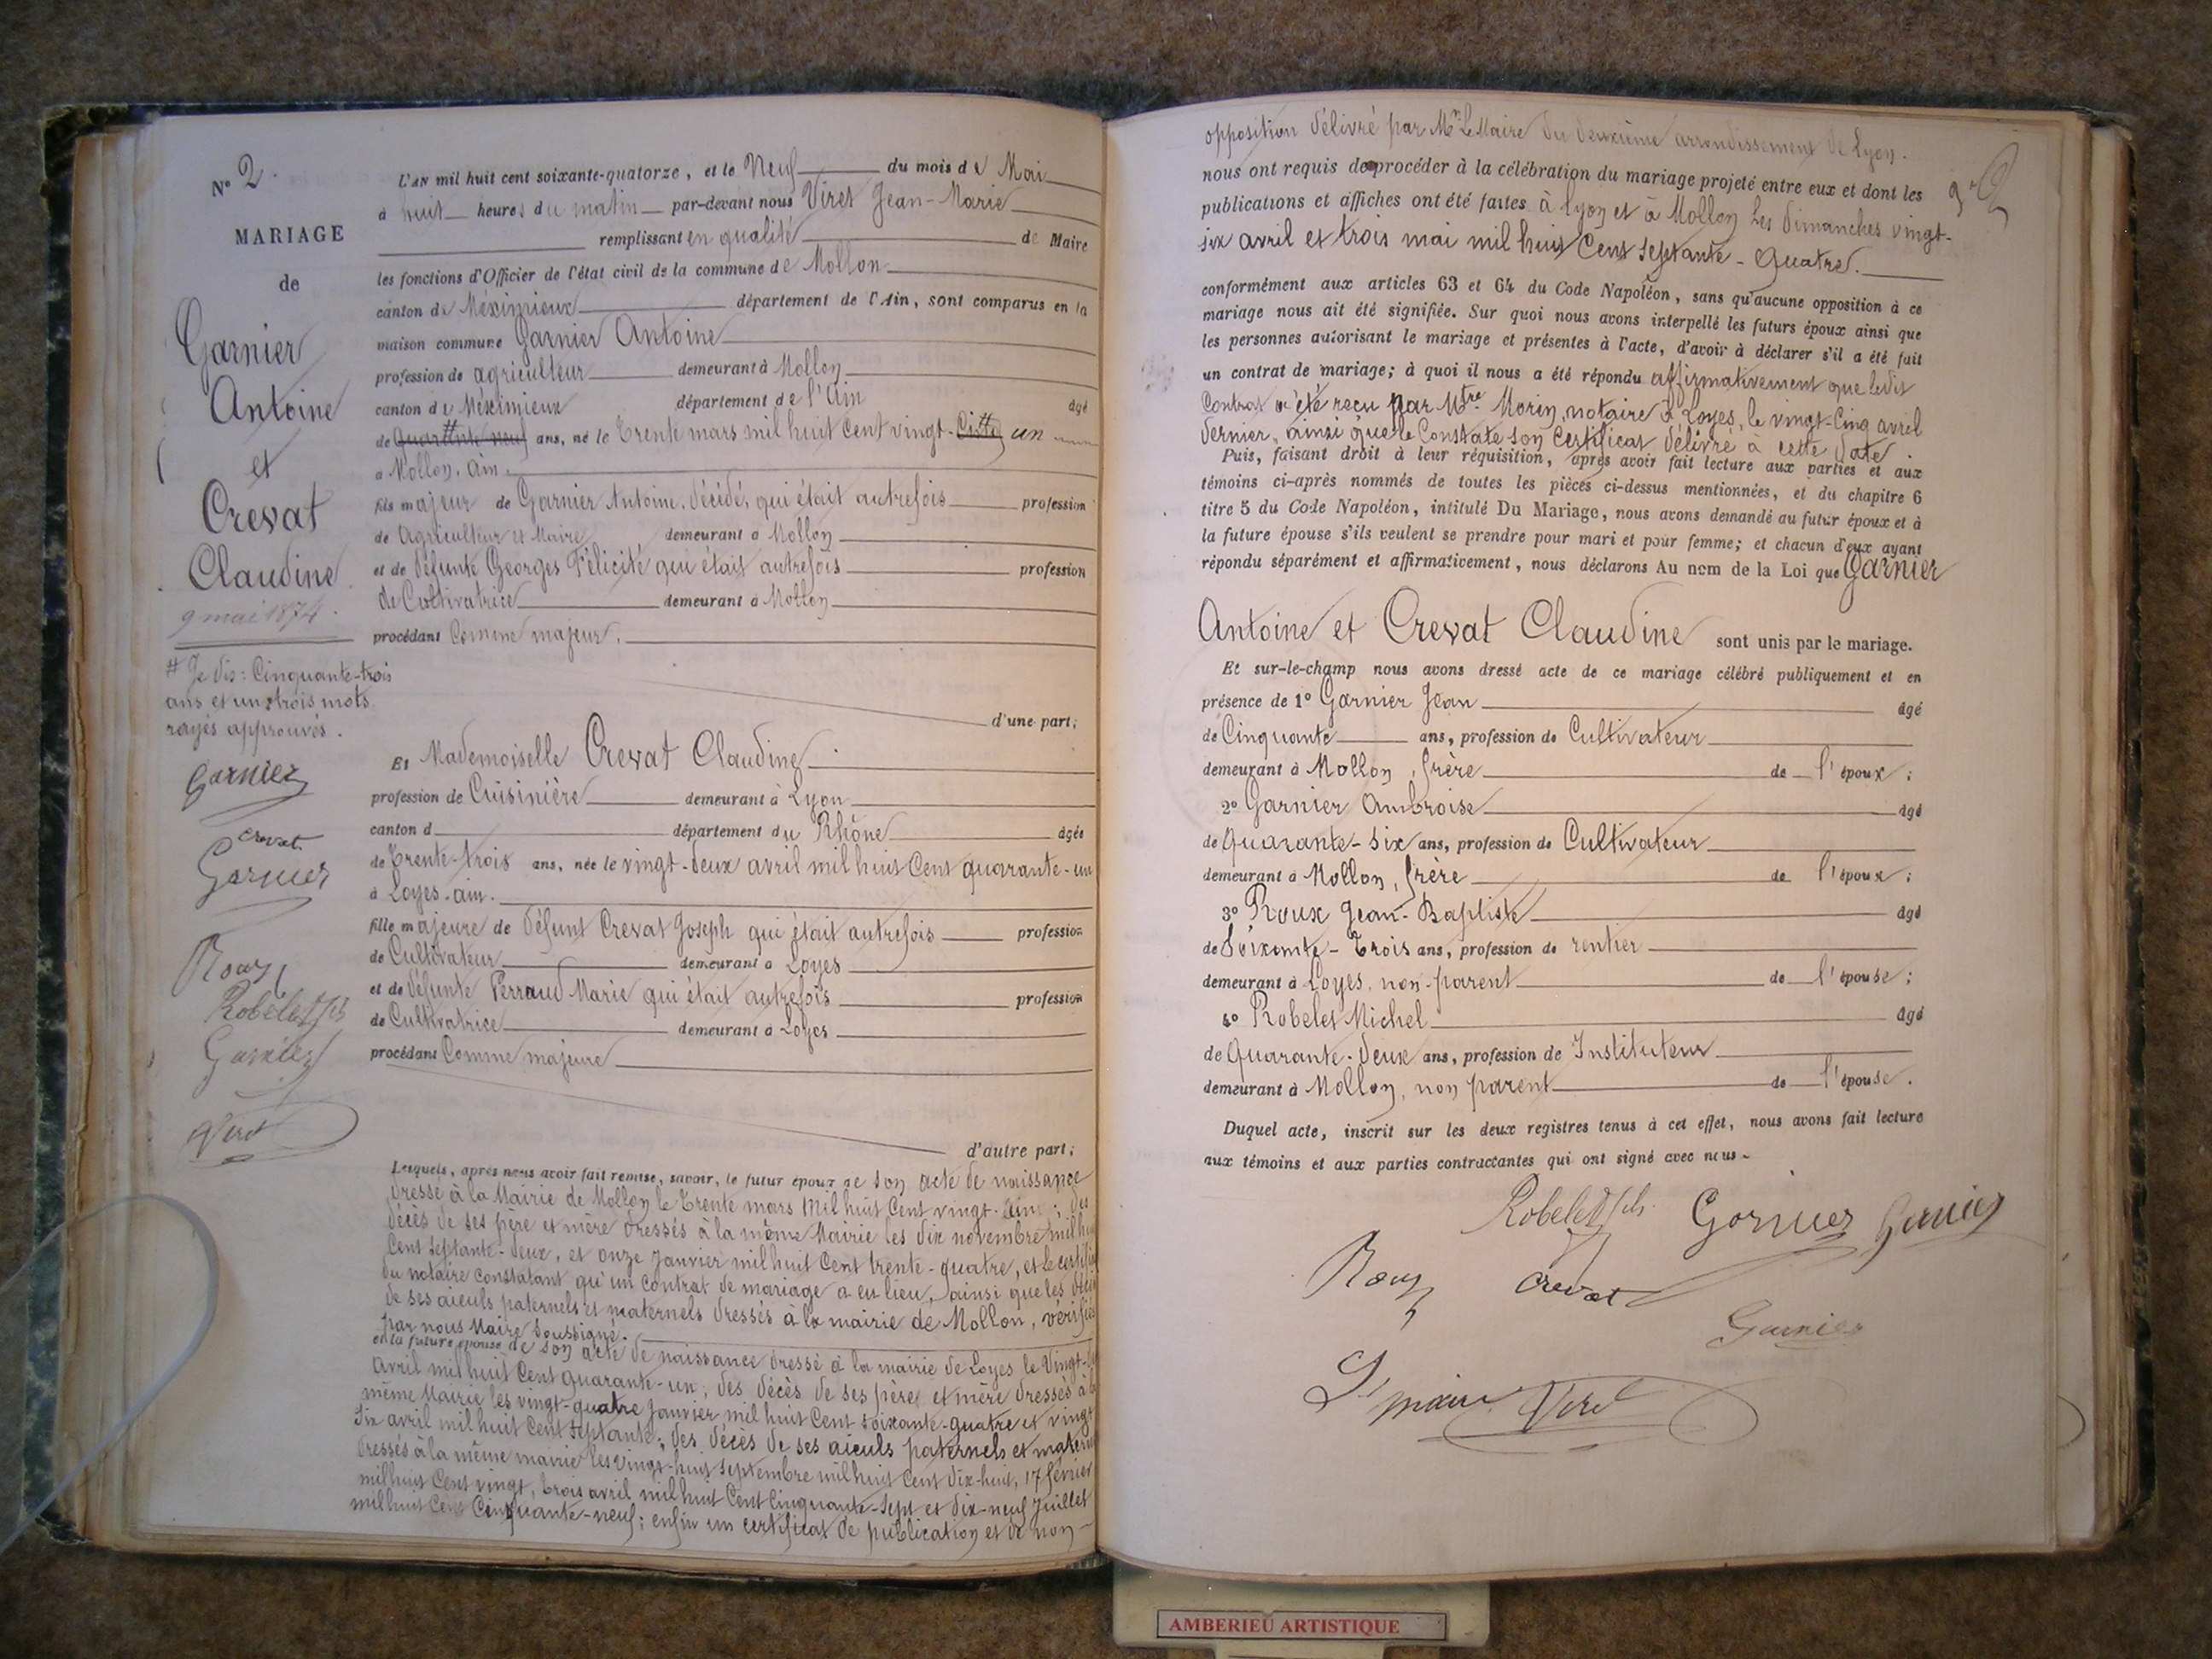 N° 2.
MARIAGE
de
Garnier
Antoine
et
Crevat
Claudine
9 mai 1874.
# Je dis : Cinquante-trois
ans et un trois mots
rayés approuvés.
Garnier
Crevat
Garnier
Roux
Robelet fils
Garnier
Viret
L'AN mil huit cent soixante-quatorze, et le Neuf du mois de Mai
à huit heures du matin par-devant nous Viret Jean-Marie
remplissant en qualité de Maire
les fonctions d'Officier de l'état civil de la commune de Mollon
canton de Méximieux département de l'Ain, sont comparus en la
maison commune Garnier Antoine
profession de agriculteur demeurant à Mollon
canton de Méximieux département de l'Ain âgé
de Quarante neuf ans, né le Trente mars mil huit Cent vingt-Cinq un
à Mollon, Ain.
fils majeur de Garnier Antoine, décédé, qui était autrefois profession
de Agriculteur et Maire demeurant à Mollon
et de défunte Georges Félicité qui était autrefois profession
de Cultivatrice demeurant à Mollon
procédant Comme majeur.
d'une part;
Et Mademoiselle Crevat Claudine
profession de Cuisinière demeurant à Lyon
canton d département du Rhône âgée
de Trente-trois ans, née le vingt-deux avril mil huit Cent quarante-un
à Loyes-ain.
fille majeure de défunt Crevat Joseph qui était autrefois profession
de Cultivateur demeurant à Loyes
et de défunte Perraud Marie qui était autrefois profession
de Cultivatrice demeurant à Loyes
procédant Comme majeure
d'autre part;
Lesquels, après nous avoir fait remise, savoir, le futur époux de son acte de naissance
dressé à la Mairie de Mollon le Trente mars Mil huit Cent vingt- ; des
décès de ses père et mère dressés à la même Mairie les dix novembre mil huit
Cent septante-deux, et onze Janvier mil huit Cent trente-quatre, et le certifi
du notaire constatant qu'un contrat de mariage a eu lieu, ainsi que les décès
de ses aïeuls paternels et maternels dressés à la mairie de Mollon, vérifiés
par nous Maire soussigné.
et la future épouse de son acte de naissance dressé à la mairie de Loyes le Vingt-
Avril mil huit Cent quarante-un ; des décès de ses père et mère dressés à la
même Mairie les vingt-quatre Janvier mil huit Cent soixante-quatre et vingt
Six avril mil huit Cent septante ; des décès de ses aïeuls paternels et matern
dressés à la même mairie les vingt-huit Septembre mil huit Cent dix-huit, 17 février
mil huit Cent vingt, trois avril mil huit Cent Cinquante-sept et dix-neuf Juillet
mil huit Cent Cinquante-neuf ; enfin un certificat de publication et de non-
opposition délivré par Mr. Le Maire du deuxième arrondissement de Lyon.
nous ont requis de procéder à la célébration du mariage projeté entre eux et dont les
publications et affiches ont été faites à Lyon et à Mollon les dimanches vingt-
six avril et trois mai mil huit Cent septante-quatre.
conformément aux articles 63 et 64 du Code Napoléon, sans qu'aucune opposition à ce
mariage nous ait été signifiée. Sur quoi nous avons interpellé les futurs époux ainsi que
les personnes autorisant le mariage et présentes à l'acte, d'avoir à déclarer s'il a été fait
un contrat de mariage; à quoi il nous a été répondu affirmativement que ledit
Contrat a été reçu par Mtre Morin, notaire à Loyes, le vingt-cinq avril
dernier, ainsi que le Constate son certificat délivré à cette date.
Puis, faisant droit à leur réquisition, après avoir fait lecture aux parties et aux
témoins ci-après nommés de toutes les pièces ci-dessus mentionnées, et du chapitre 6
titre 5 du Code Napoléon, intitulé Du Mariage, nous avons demandé au futur époux et à
la future épouse s'ils veulent se prendre pour mari et pour femme; et chacun d'eux ayant
répondu séparément et affirmativement, nous déclarons Au nom de la Loi que Garnier
Antoine et Crevat Claudine sont unis par le mariage.
Et sur-le-champ nous avons dressé acte de ce mariage célébré publiquement et en
présence de 1° Garnier Jean âgé
de Cinquante ans, profession de Cultivateur
demeurant à Mollon, frère de l'époux ;
2° Garnier Ambroise âgé
de Quarante-six ans, profession de Cultivateur
demeurant à Mollon, frère de l'époux ;
3° Roux Jean-Baptiste âgé
de Soixante-Trois ans, profession de rentier
demeurant à Loyes, non-parent de l'épouse ;
4° Robelet Michel âgé
de Quarante-deux ans, profession de Instituteur
demeurant à Mollon, non parent de l'épouse.
Duquel acte, inscrit sur les deux registres tenus à cet effet, nous avons fait lecture
aux témoins et aux parties contractantes qui ont signé avec nous.
Robelet fils Garnier Garnier
Roux Crevat
Garnier
Le maire Viret
AMBERIEU ARTISTIQUE